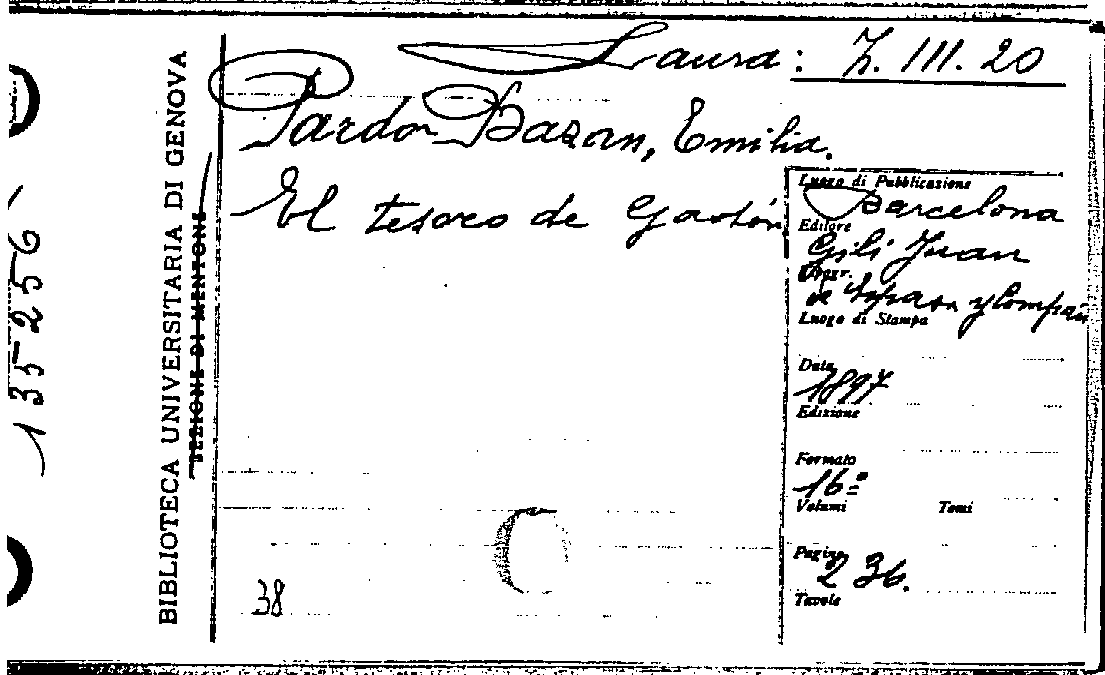 Laura: Z. III. 20
Pardo Bazan, Emilia.
El tesoro de Gastón
Luogo di Pubblicazione
Barcelona
Editore
Gili Juan
de Espasa y Compañ
Luogo di Stampa
Data
1897
Edizione
Formato
16º
Volumi Tomi
Pagine
236.
Tavole
38
BIBLIOTECA UNIVERSITARIA DI GENOVA
SEZIONE DI MENTONE
135256